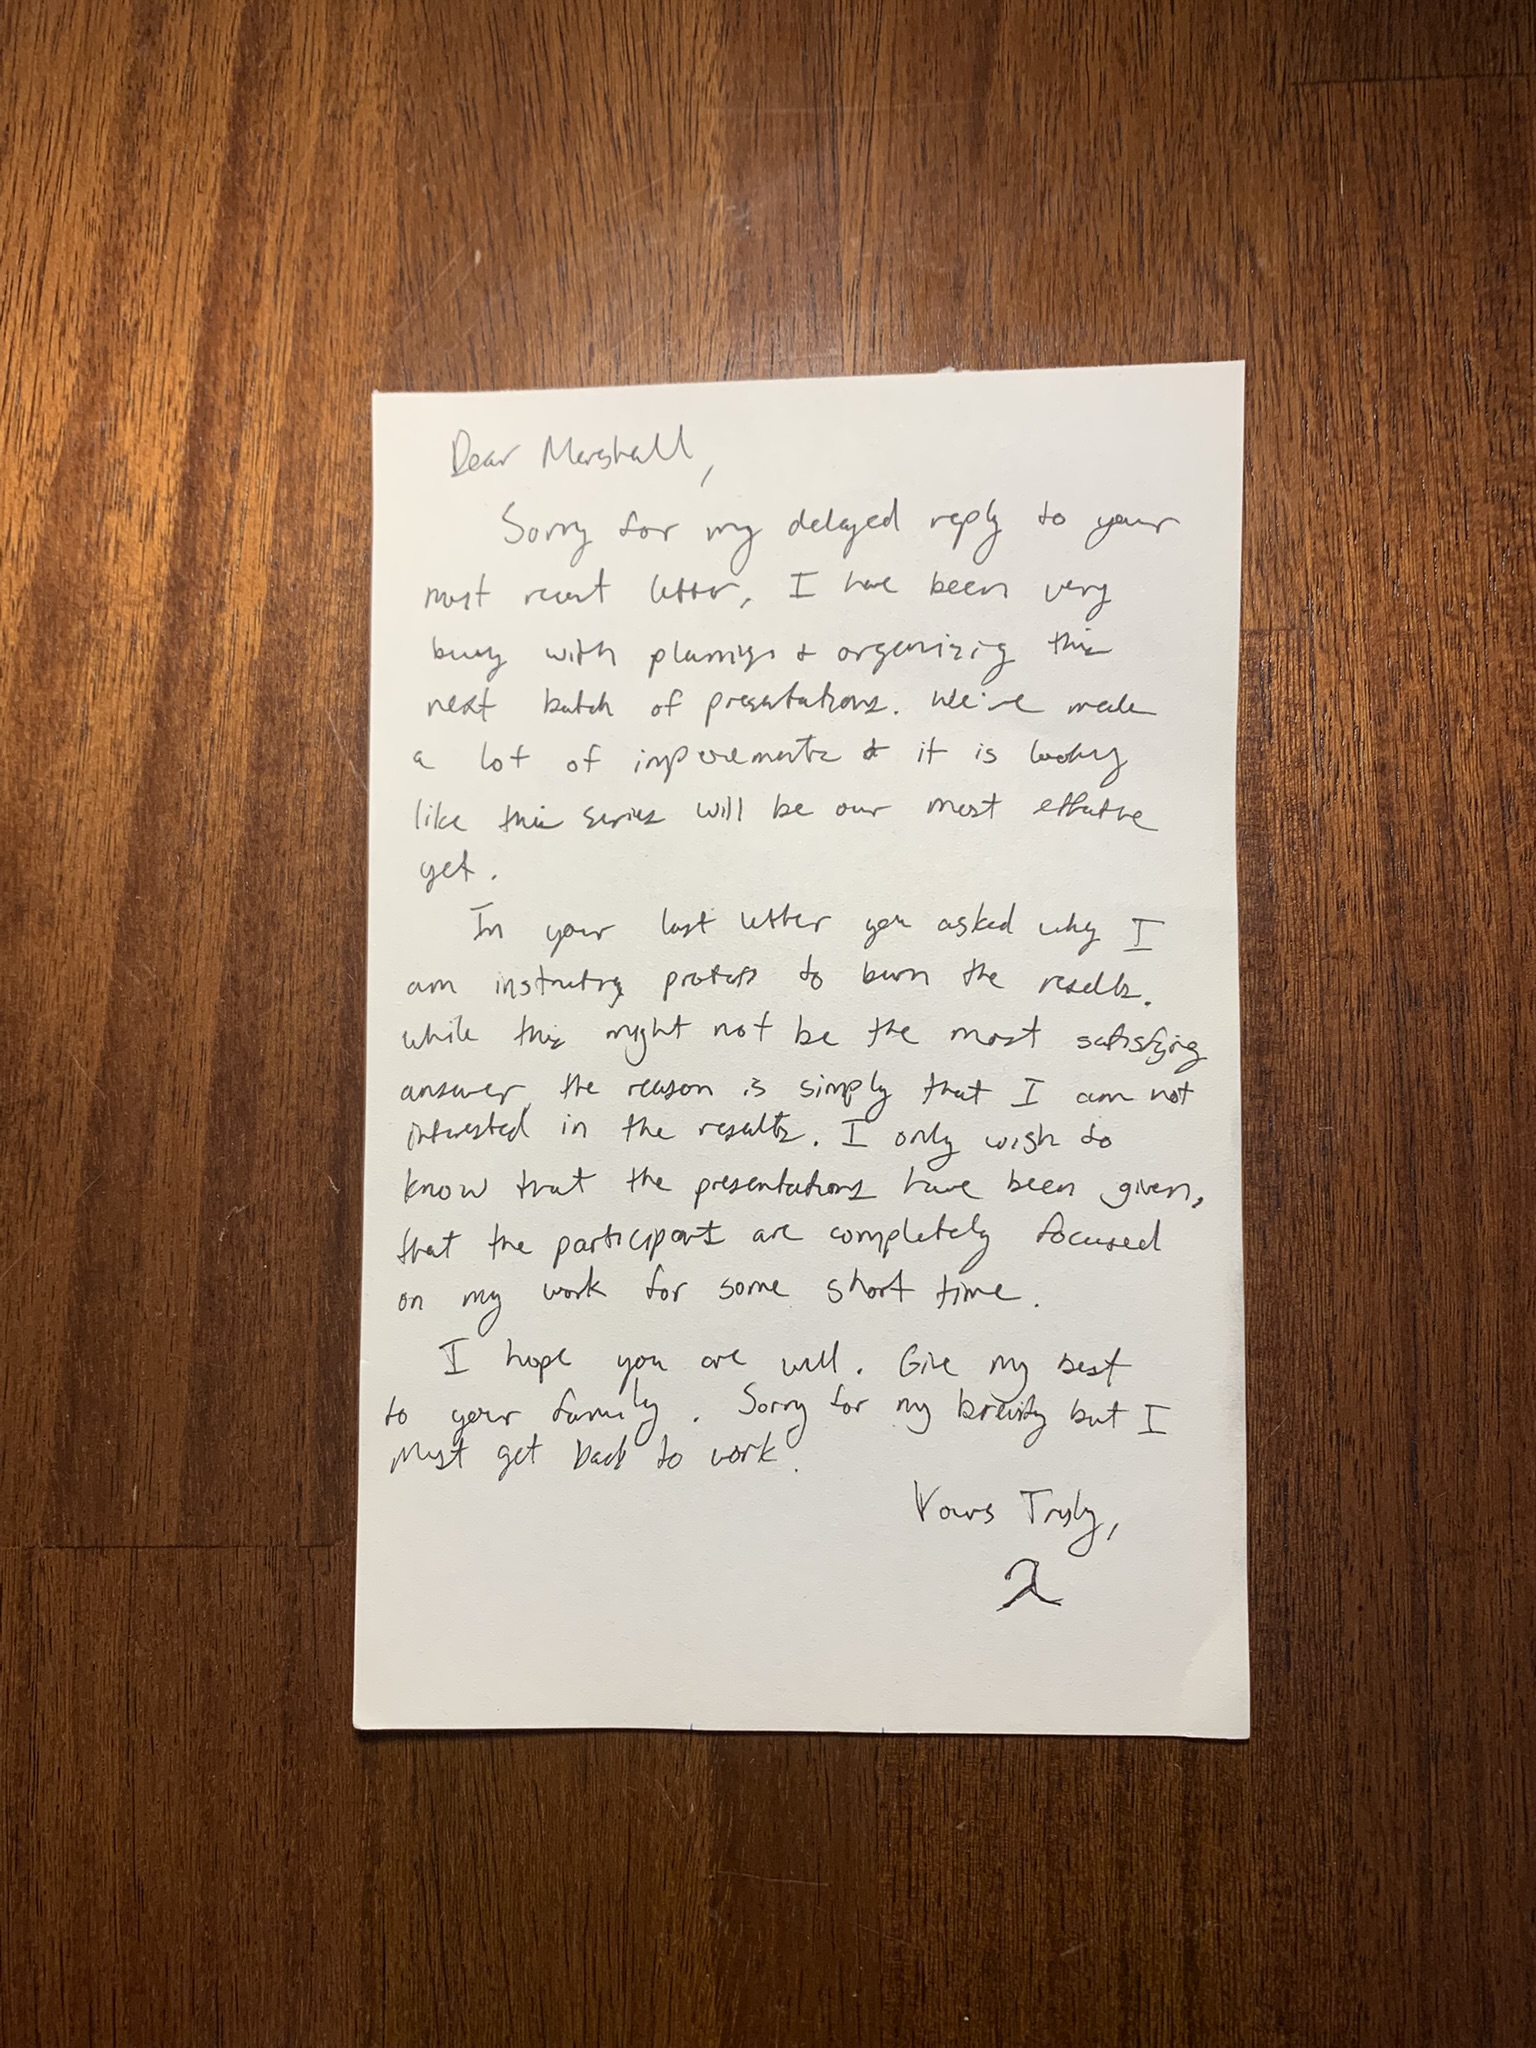 Dear Marshall,
Sorry for my delayed reply to your
most recent letter, I have been very
busy with planning & organizing this
next batch of presentations. We've made
a lot of improvements & it is looking
like this series will be our most effective
yet.
In your last letter you asked why I
am instructing to burn the results.
While this might not be the most satisfying
answer, the reason is simply that I am not
interested in the results. I only wish to
know that the presentations have been given,
that the participants are completely focused
on my work for some short time.
I hope you are well. Give my best
to your family. Sorry for my brevity but I
must get back to work.
Yours Truly,
λ